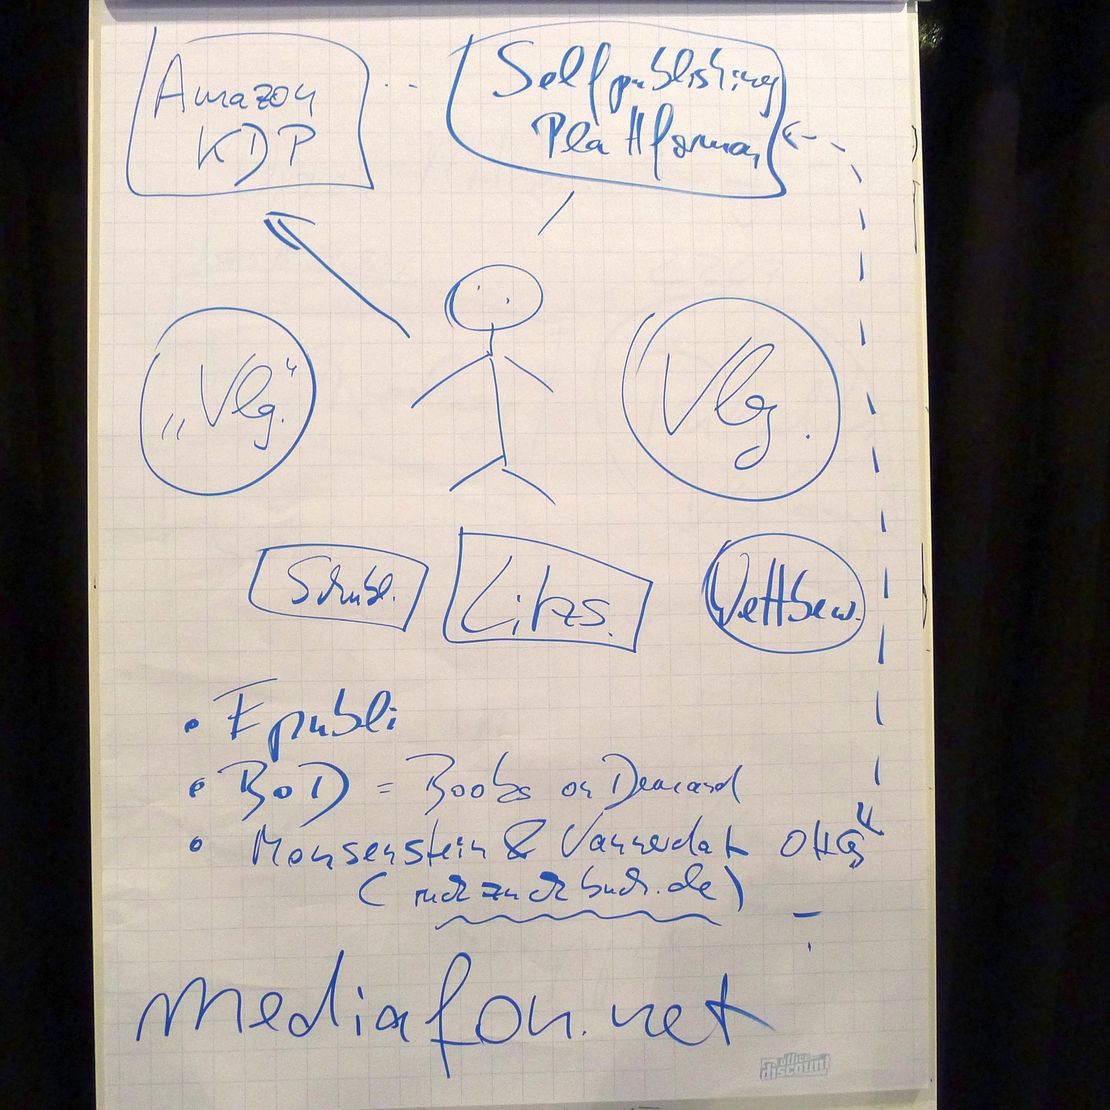 Amazon
KDP
Selfpublishing
Plattformen
„Vlg.“
Vlg.
Litzs.
Wettbew.
• Epubli
• BoD = Books on Demand
• Monsenstein & Vannerdat OHG
(ruckzuckbuch.de)
mediafon.net
office
discount